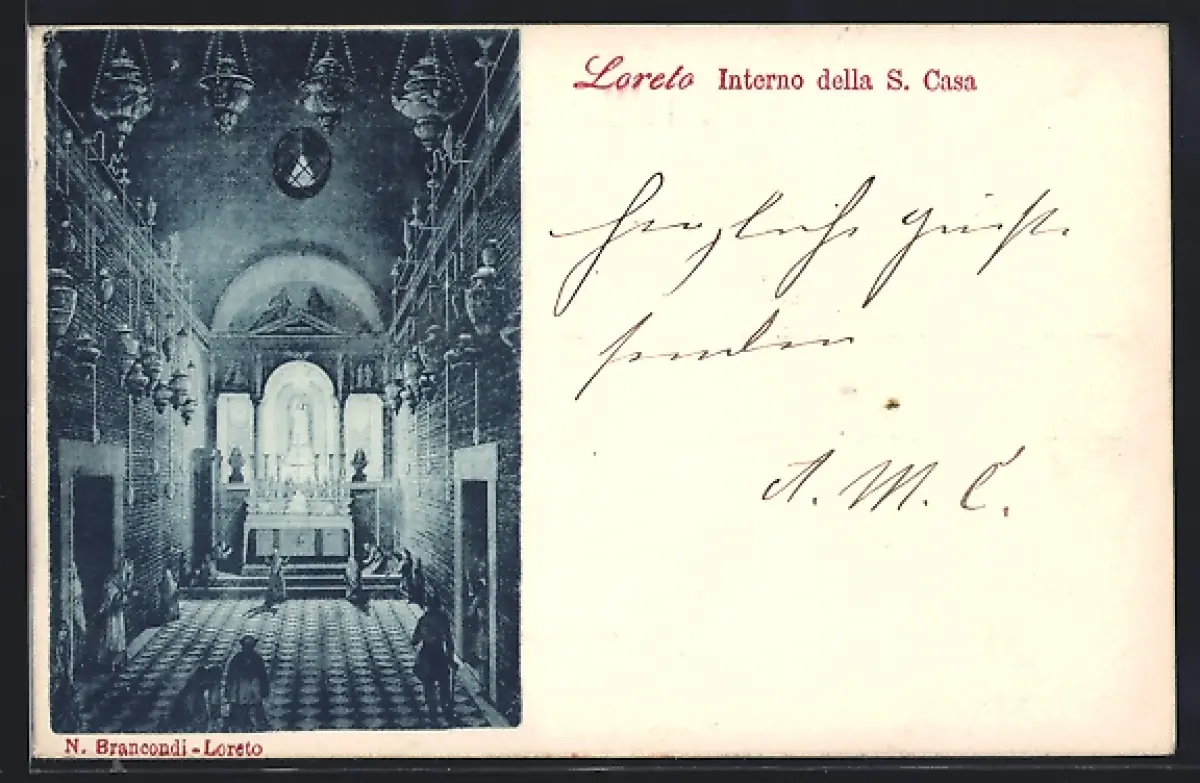 Loreto Interno della S. Casa
Herzlichste Grüße
senden
A. M. C.
N. Brancondi - Loreto